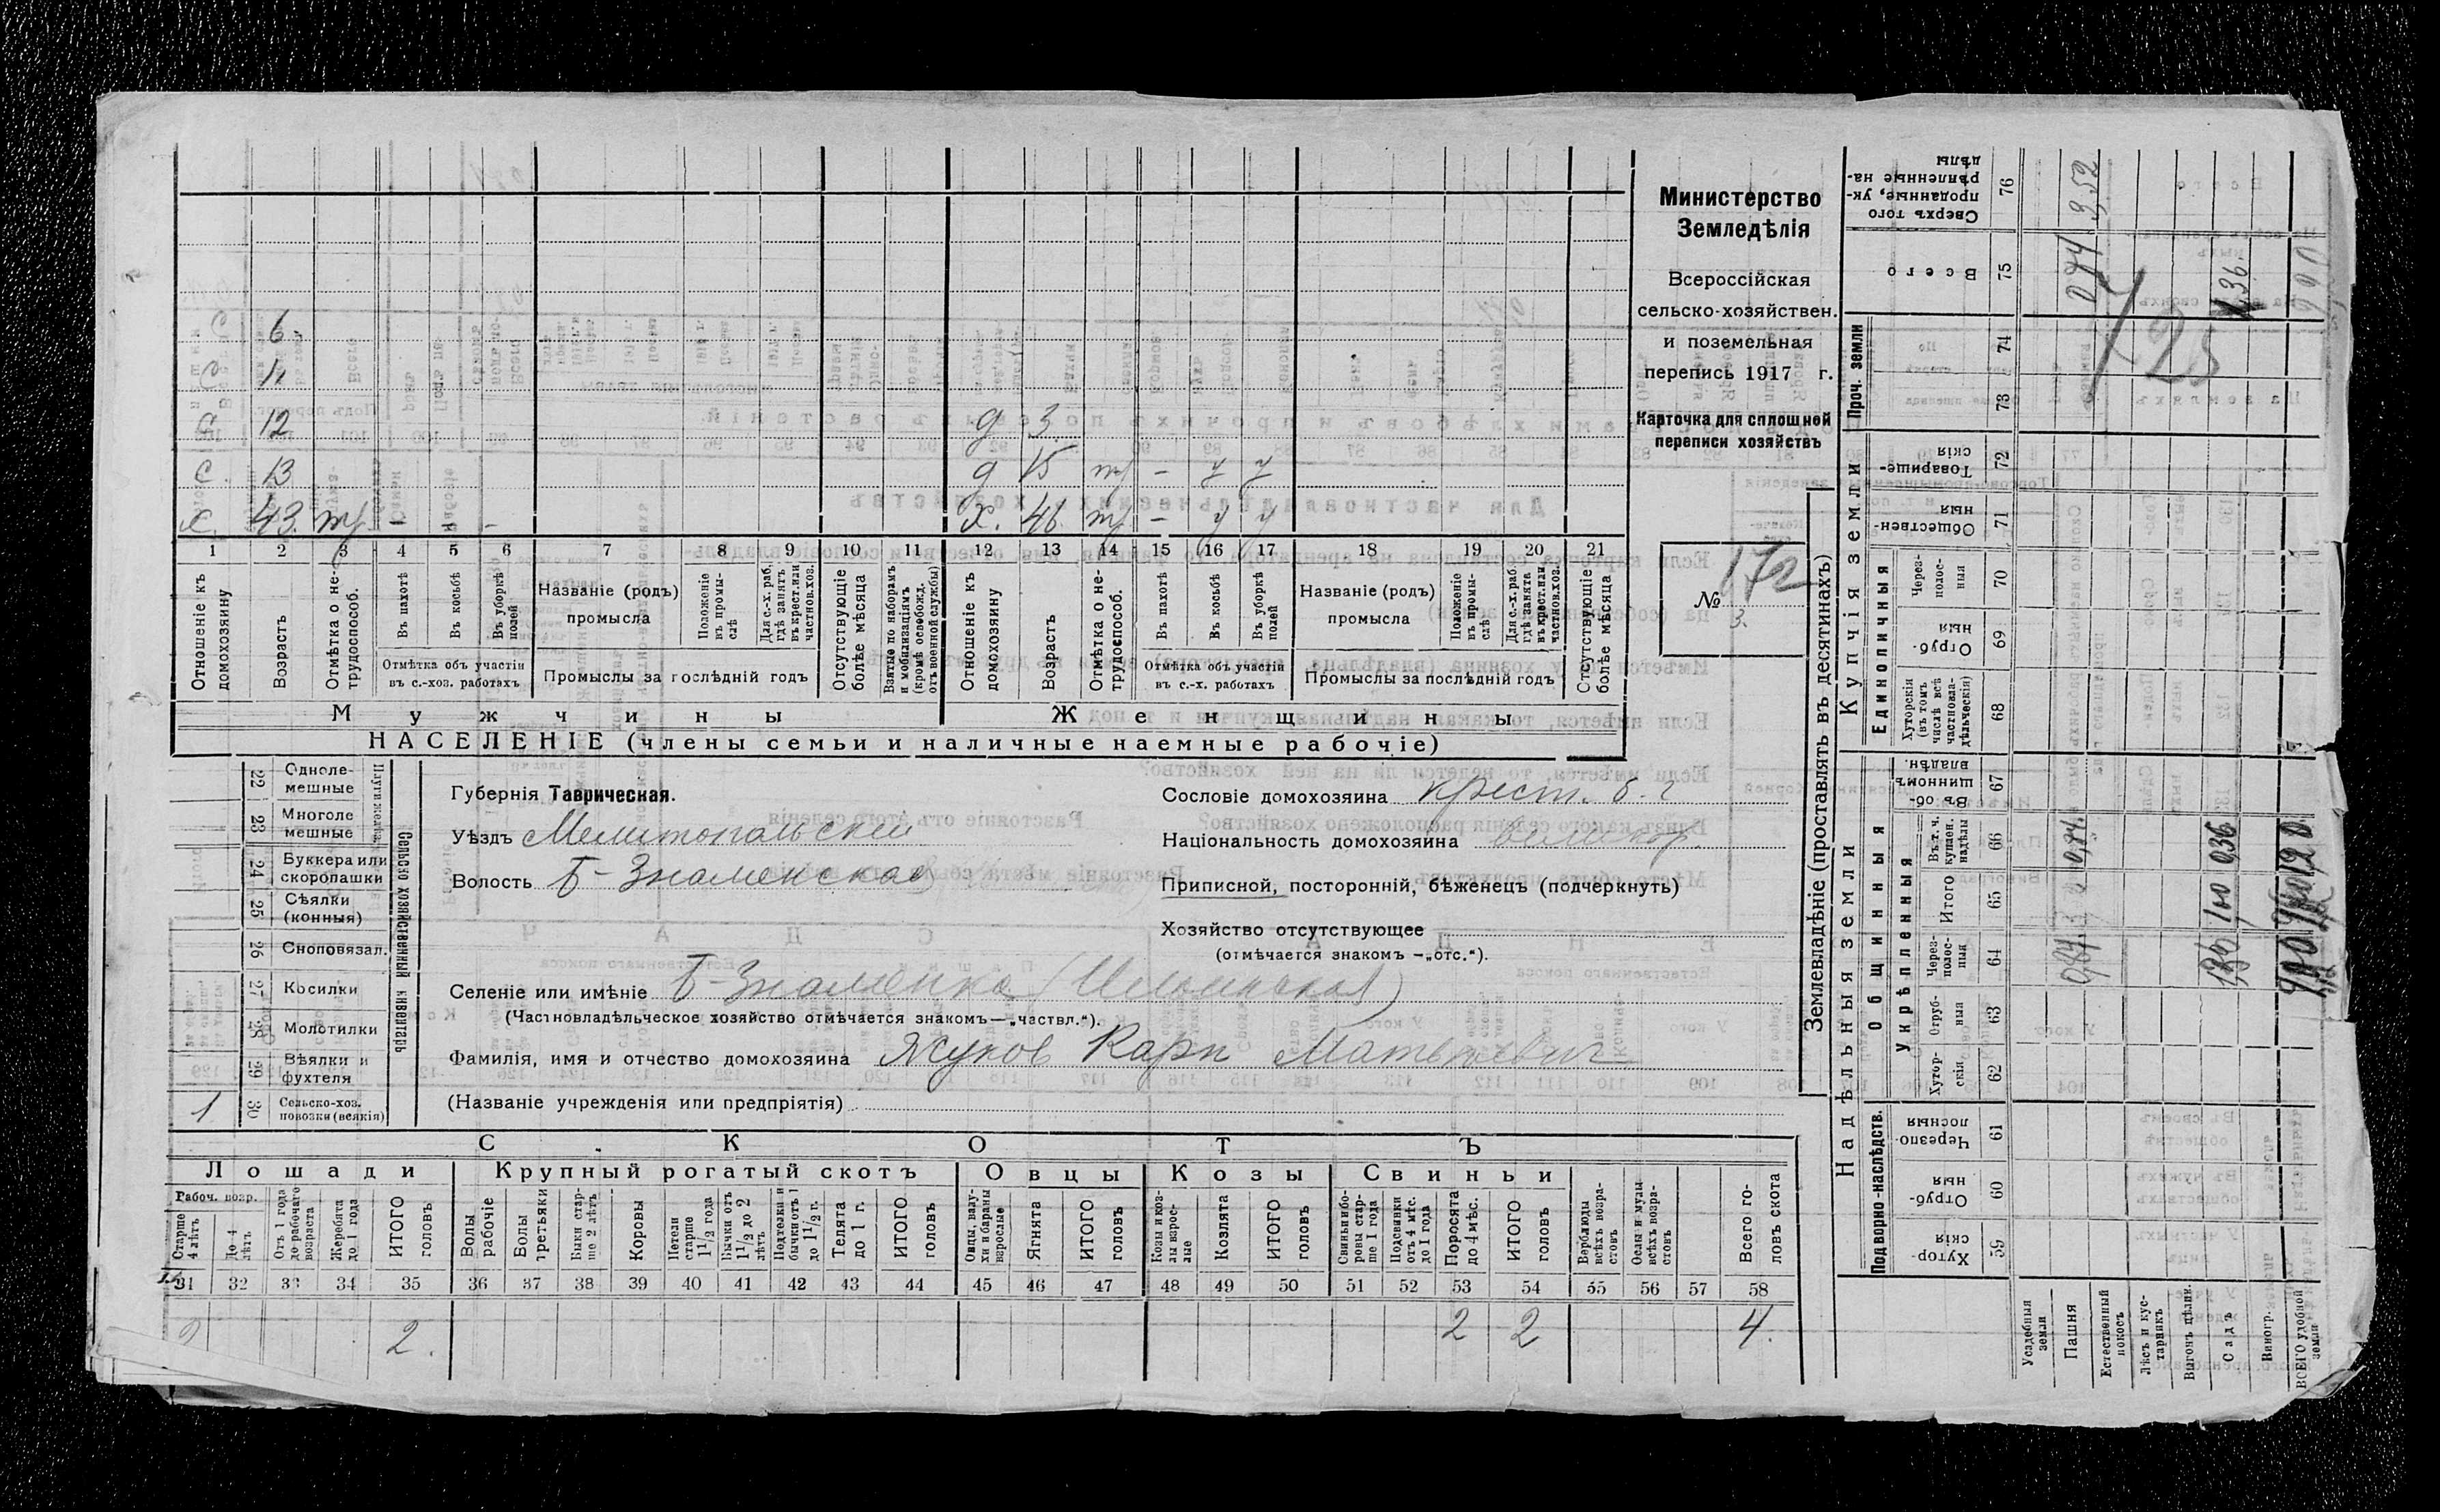 Министерство
Земледѣлія
Всероссійская
сельско-хозяйствен.
и поземельная
перепись 1917 г.
Карточка для сплошной
переписи хозяйствъ
№ 172
3.
6
С 11
С 12 д 3
С. 13 д 15 – у у
х. 43. – – х. 46 – у у
1 2 3 4 5 6 7 8 9 10 11 12 13 14 15 16 17 18 19 20 21
Отношеніе къ домохозяину
Возрастъ
Отмѣтка о нетрудоспособ.
Въ пахотѣ
Въ косьбѣ
Въ уборкѣ полей
Отмѣтка объ участіи въ с.-хоз. работахъ
Названіе (родъ) промысла
Положеніе въ промыслѣ
Для с.-х. раб. гдѣ занятъ въ крест. или частнов. хоз.
Промыслы за послѣдній годъ
Отсутствующіе болѣе мѣсяца
Взятые по наборамъ и мобилизаціямъ (кромѣ освобожд. отъ военной службы)
Отношеніе къ домохозяину
Возрастъ
Отмѣтка о нетрудоспособ.
Въ пахотѣ
Въ косьбѣ
Въ уборкѣ полей
Отмѣтка объ участіи въ с.-х. работахъ
Названіе (родъ) промысла
Положеніе въ промыслѣ
Для с.-х. раб. гдѣ занята въ крест. или частнов. хоз.
Промыслы за послѣдній годъ
Отсутствующіе болѣе мѣсяца
Мужчины Женщины
НАСЕЛЕНІЕ (члены семьи и наличные наемные рабочіе)
Сельско хозяйственный инвентарь
22 Однолемешные
23 Многолемешные
24 Буккера или скоропашки
25 Сѣялки (конныя)
26 Сноповязал.
27 Косилки
28 Молотилки
29 Вѣялки и фухтеля
1 30 Сельско-хоз. повозки (всякія)
Губернія Таврическая.
Уѣздъ Мелитопольскій
Волость Б-Знаменская
Сословіе домохозяина крест. б. г
Національность домохозяина великор.
Приписной, посторонній, бѣженецъ (подчеркнуть)
Хозяйство отсутствующее
(отмѣчается знакомъ –„отс.“).
Селеніе или имѣніе Б-Знаменка
(Частновладѣльческое хозяйство отмѣчается знакомъ—„частвл.“).
Фамилія, имя и отчество домохозяина Жуков Карп Матвѣевич
(Названіе учрежденія или предпріятія)
СКОТЪ
Лошади Крупный рогатый скотъ Овцы Козы Свиньи
Рабоч. возр.
Старше 4 лѣтъ
До 4 лѣтъ
Отъ 1 года до рабочаго возраста
Жеребята до 1 года
ИТОГО головъ
Волы рабочіе
Волы третьяки
Быки старше 2 лѣтъ
Коровы
Нетели старше 1 1/2 года
Бычки отъ 1 1/2 до 2 лѣтъ
Подтелки и бычки отъ 1 до 1 1/2 г.
Телята до 1 г.
ИТОГО головъ
Овцы, валухи и бараны взрослые
Ягнята
ИТОГО головъ
Козы и козлы взрослые
Козлята
ИТОГО головъ
Свиньи и боровы старше 1 года
Подсвинки отъ 4 мѣс. до 1 года
Поросята до 4 мѣс.
ИТОГО головъ
Верблюды всѣхъ возрастовъ
Ослы и мулы всѣхъ возрастовъ
Всего головъ скота
31 32 33 34 35 36 37 38 39 40 41 42 43 44 45 46 47 48 49 50 51 52 53 54 55 56 57 58
2 2. 2 2 4.
Землевладѣніе (проставлять въ десятинахъ)
Надѣльныя земли Купчія земли Проч. земли
Подворно-наслѣдств. Общинныя Единоличныя
Укрѣпленныя
Хуторскія 59
Отрубныя 60
Черезполосныя 61
Хуторскія 62
Отрубныя 63
Черезполосныя 64
Итого 65
Въ т. ч. купчен. надѣлы 66
Въ общинномъ владѣн. 67
Хуторскія (въ томъ числѣ всѣ частновладѣльческія) 68
Отрубныя 69
Черезполосныя 70
Общественныя 71
Товарищескія 72
73
74
Всего 75
Сверхъ того проданные, укрѣпленные надѣлы 76
Усадебныя земли
Пашня
Естественный покосъ
Лѣсъ и кустарникъ
Выгонъ цѣлин.
Садъ
Виногр.
ВСЕГО удобной земли
3,52
125